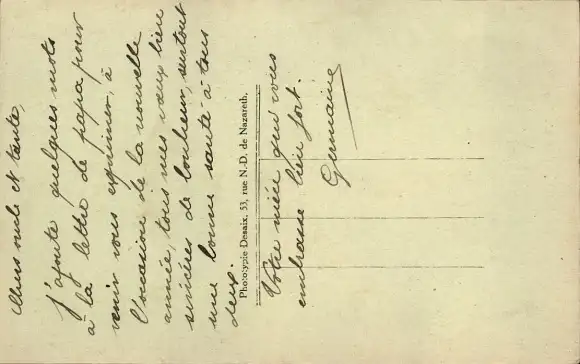 Chers oncle et tante,
J'ajoute quelques mots
à la lettre de papa pour
venir vous exprimer, à
l'occasion de la nouvelle
année, tous mes vœux bien
sincères de bonheur, surtout
une bonne santé à tous
deux.
Phototypie Desaix, 53, rue N.-D. de Nazareth.
Votre nièce qui vous
embrasse bien fort.
Germaine